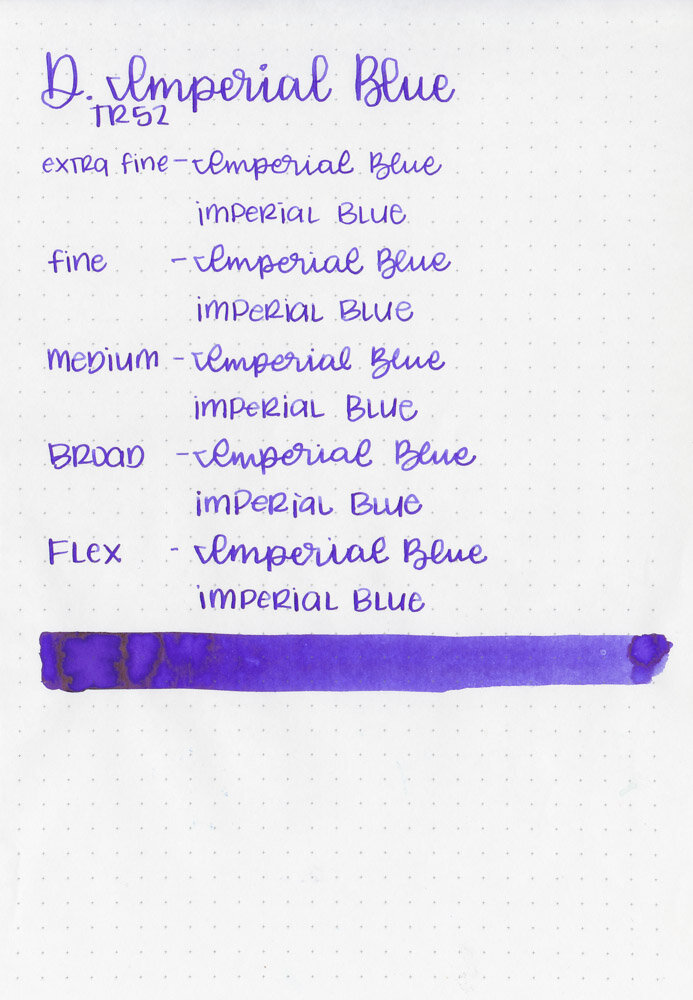 D. Imperial Blue
TR52
extra fine - Imperial Blue
imperial Blue
fine - Imperial Blue
imperial Blue
medium - Imperial Blue
imperial Blue
Broad - Imperial Blue
imperial Blue
Flex - Imperial Blue
imperial Blue